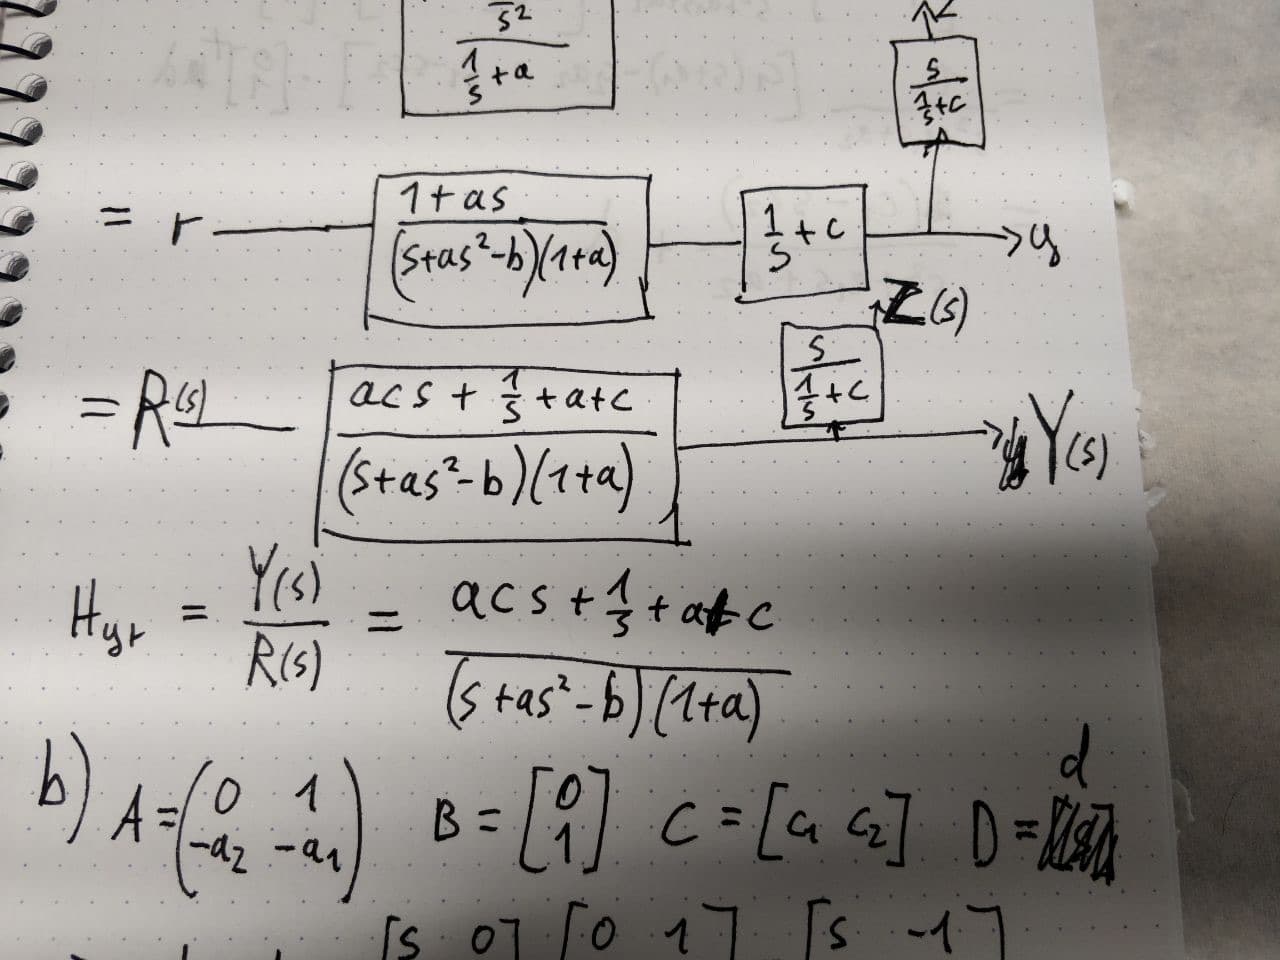 s²
1/s + a
s
1/s + c
= r (1 + as)/((s+as²-b)(1+a)) 1/s + c y
Z(s)
s
1/s + c
= R(s) (acs + 1/s + a+c)/((s+as²-b)(1+a)) Y(s)
Hyr = Y(s)/R(s) = (acs + 1/s + a+c)/((s+as²-b)(1+a))
b) A = (0 1 -a₂ -a₁) B = [0 1] C = [c₁ c₂] D = d
[s 0] [0 1] [s -1]